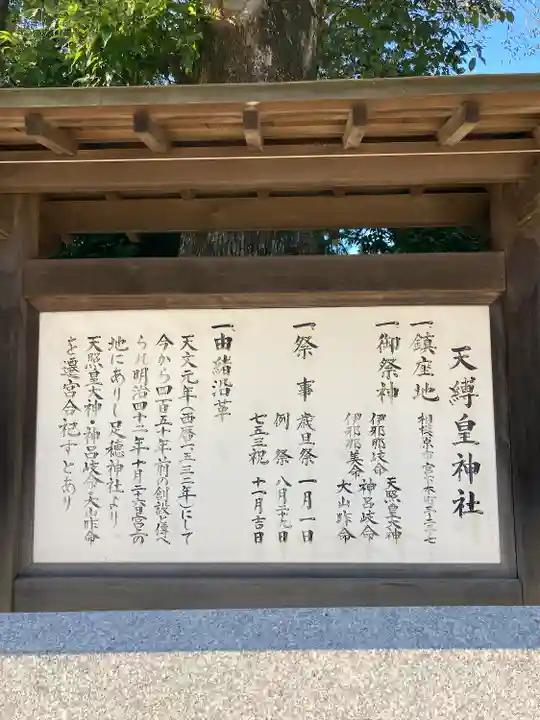 天縛皇神社
一、鎮座地 相模原市宮下本町三ー三ー七
一、御祭神 天照皇大神
伊邪那岐命 神呂岐命
伊邪那美命 大山咋命
一、祭事 歳旦祭 一月一日
例祭 八月二十九日
七五三祝 十一月吉日
一、由緒沿革
天文元年(西暦一五三二年)にして
今から四百五十年前の創設と傳へ
られ明治四十二年十月二十六日宮
地にありし足穂神社より
天照皇大神・神呂岐命・大山咋命
を遷宮合祀すとあり